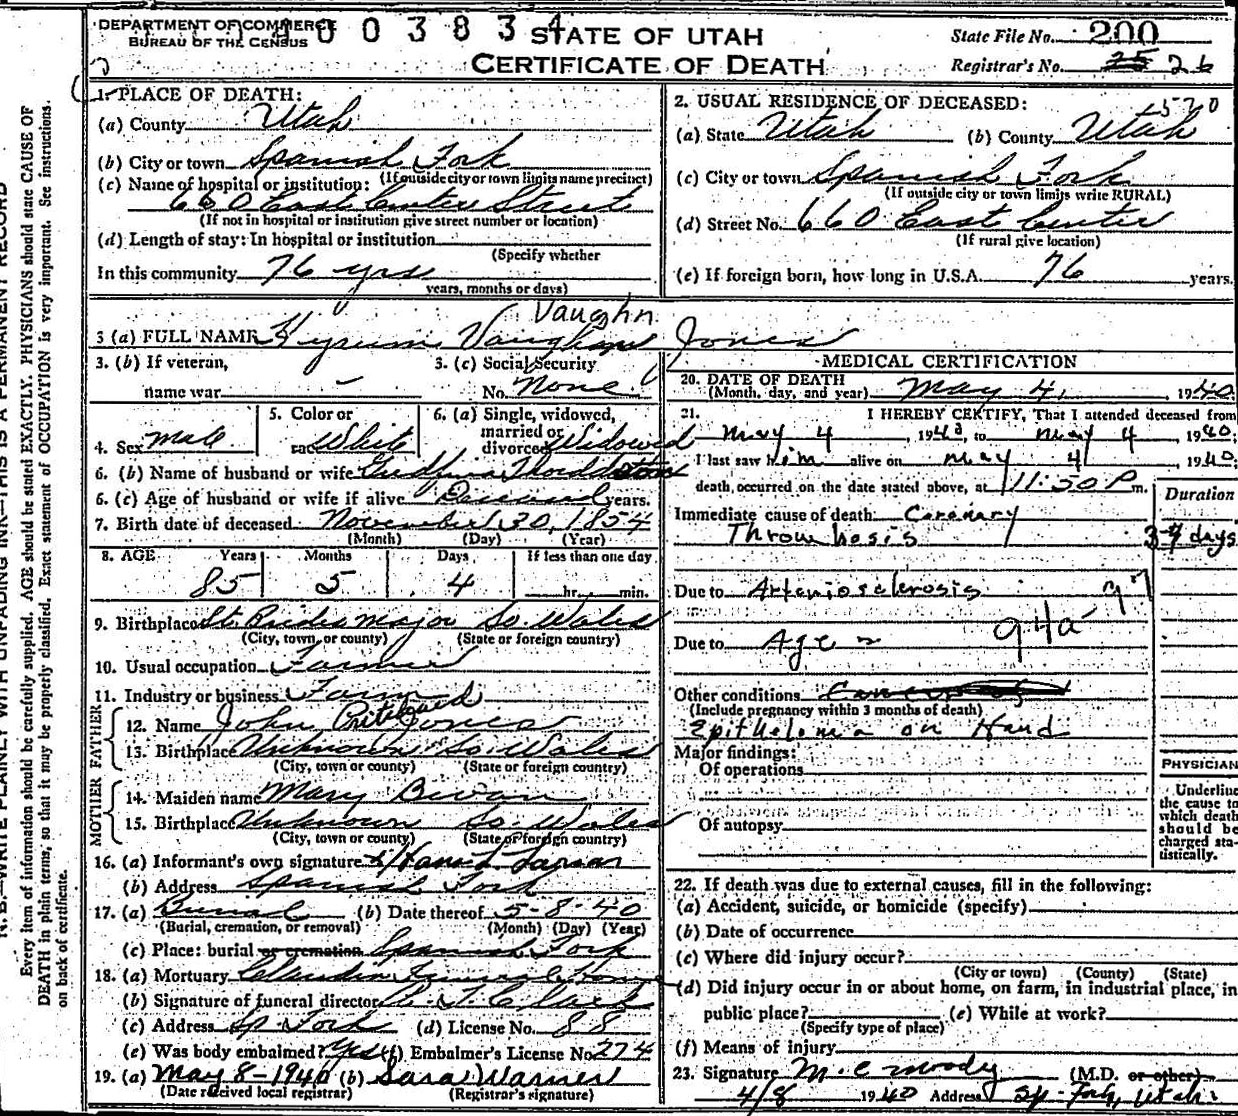 DEPARTMENT OF COMMERCE
BUREAU OF THE CENSUS
4 0 0 3 8 3 4
STATE OF UTAH
CERTIFICATE OF DEATH
State File No. 200
Registrar's No. 25 26
1. PLACE OF DEATH:
(a) County Utah
(b) City or town Spanish Fork
(If outside city or town limits name precinct)
(c) Name of hospital or institution:
660 East Center Street
(If not in hospital or institution give street number or location)
(d) Length of stay: In hospital or institution
(Specify whether
In this community 76 yrs
years, months or days)
2. USUAL RESIDENCE OF DECEASED:
(a) State Utah (b) County Utah
(c) City or town Spanish Fork
(If outside city or town limits write RURAL)
(d) Street No. 660 East Center
(If rural give location)
(e) If foreign born, how long in U.S.A. 76 years.
Vaughn
3 (a) FULL NAME Hyrum Vaughn Jones
3. (b) If veteran,
name war -
3. (c) Social Security
No. None
4. Sex Male
5. Color or
race White
6. (a) Single, widowed,
married or
divorced Widowed
6. (b) Name of husband or wife
6. (c) Age of husband or wife if alive Deceased years.
7. Birth date of deceased November 30, 1854
(Month) (Day) (Year)
8. AGE Years Months Days If less than one day
85 5 4 hr. min.
9. Birthplace St. Brides Major So. Wales
(City, town, or county) (State or foreign country)
10. Usual occupation Farmer
11. Industry or business
FATHER
12. Name John Jones
13. Birthplace Unknown So. Wales
(City, town or county) (State or foreign country)
MOTHER
14. Maiden name Mary Bevan
15. Birthplace Unknown So. Wales
(City, town or county) (State or foreign country)
16. (a) Informant's own signature
(b) Address Spanish Fork
17. (a) Burial (b) Date thereof 5-8-40
(Burial, cremation, or removal) (Month) (Day) (Year)
(c) Place: burial or cremation Spanish Fork
18. (a) Mortuary Claudin Funeral Home
(b) Signature of funeral director
(c) Address Sp. Fork (d) License No. 88
(e) Was body embalmed? Yes (f) Embalmer's License No. 274
19. (a) May 8-1940 (b) Sara Warner
(Date received local registrar) (Registrar's signature)
MEDICAL CERTIFICATION
20. DATE OF DEATH
(Month, day, and year) May 4, 1940
21. I HEREBY CERTIFY, That I attended deceased from
May 4, 1940, to May 4, 1940;
I last saw him alive on May 4, 1940;
death occurred on the date stated above, at 11:50 P m.
Duration
Immediate cause of death: Coronary
Thrombosis 3-4 days
Due to Arteriosclerosis
94a
Due to Age
Other conditions
(Include pregnancy within 3 months of death)
Epithelioma on Hand
Major findings:
Of operations
Of autopsy
PHYSICIAN
Underline
the cause to
which death
should be
charged sta-
tistically.
22. If death was due to external causes, fill in the following:
(a) Accident, suicide, or homicide (specify)
(b) Date of occurrence
(c) Where did injury occur?
(City or town) (County) (State)
(d) Did injury occur in or about home, on farm, in industrial place, in
public place? (e) While at work?
(Specify type of place)
(f) Means of injury
23. Signature M. C. Moody (M.D. or other)
4/8 1940 Address Sp. Fork, Utah
N. B.—WRITE PLAINLY WITH UNFADING INK—THIS IS A PERMANENT RECORD
Every item of information should be carefully supplied. AGE should be stated EXACTLY. PHYSICIANS should state CAUSE OF
DEATH in plain terms, so that it may be properly classified. Exact statement of OCCUPATION is very important. See instructions
on back of certificate.